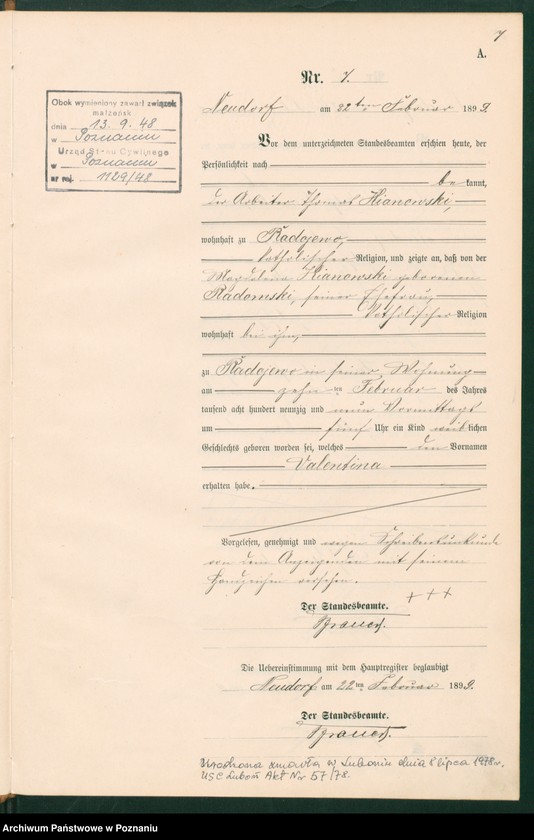 7
A.
Nr. 7.
Neudorf am 22ten Februar 1899.
Obok wymieniony zawarł związek
małżeński
dnia 13. 9. 48
w Poznaniu
Urząd Stanu Cywilnego
w Poznaniu
nr rej. 1129/48
Vor dem unterzeichneten Standesbeamten erschien heute, der
Persönlichkeit nach
bekannt,
der Arbeiter Thomas Kianowski,
wohnhaft zu Radojewo,
katholischer Religion, und zeigte an, daß von der
Kianowski geborenen
Radomski, seiner Ehefrau,
katholischer Religion
wohnhaft bei ihm,
zu Radojewo in seiner Wohnung
am zehn ten Februar des Jahres
tausend acht hundert neunzig und neun Vormittags
um fünf Uhr ein Kind weiblichen
Geschlechts geboren worden sei, welches den Vornamen
Valentina
erhalten habe.
Vorgelesen, genehmigt und wegen Schreibensunkunde
von dem Anzeigenden mit seinem
Handzeichen versehen.
+++
Der Standesbeamte.
Die Uebereinstimmung mit dem Hauptregister beglaubigt
Neudorf am 22ten Februar 1899.
Der Standesbeamte.
zmarła w Luboniu dnia 8 lipca 1978 r.
USC Luboń Akt Nr 57/78.
Archiwum Państwowe w Poznaniu